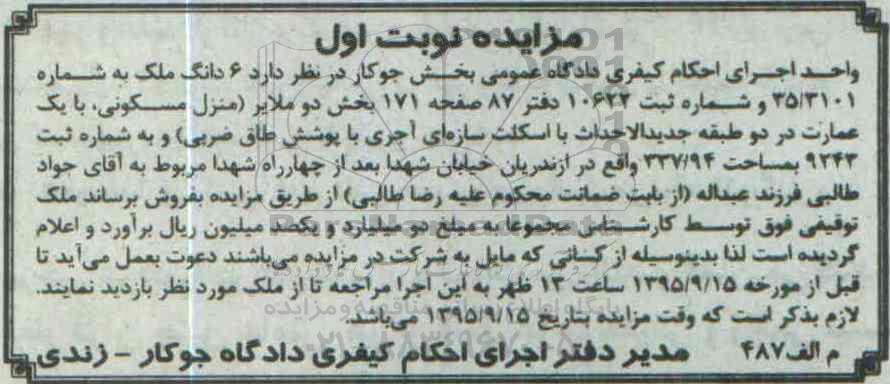 مزایده نوبت اول
واحد اجرای احکام کیفری دادگاه عمومی بخش جوکار در نظر دارد ۶ دانگ ملک به شماره
۳۵/۳۱۰۱ و شماره ثبت ۱۰۶۲۲ دفتر ۸۷ صفحه ۱۷۱ بخش دو ملایر (منزل مسکونی، با یک
عمارت در دو طبقه جدیدالاحداث با اسکلت سازه‌ای آجری با پوشش طاق ضربی) و به شماره ثبت
۹۲۴۳ بمساحت ۳۳۷/۹۴ واقع در ازندریان خیابان شهدا بعد از چهارراه شهدا مربوط به آقای جواد
طالبی فرزند عبداله (از بابت ضمانت محکوم علیه رضا طالبی) از طریق مزایده بفروش برساند ملک
توقیفی فوق توسط کارشناس مجموعا به مبلغ دو میلیارد و یکصد میلیون ریال برآورد و اعلام
گردیده است لذا بدینوسیله از کسانی که مایل به شرکت در مزایده می‌باشند دعوت بعمل می‌آید تا
قبل از مورخه ۱۳۹۵/۹/۱۵ ساعت ۱۳ ظهر به این اجرا مراجعه تا از ملک مورد نظر بازدید نمایند.
لازم بذکر است که وقت مزایده بتاریخ ۱۳۹۵/۹/۱۵ می‌باشد.
م الف ۴۸۷ مدیر دفتر اجرای احکام کیفری دادگاه جوکار - زندی